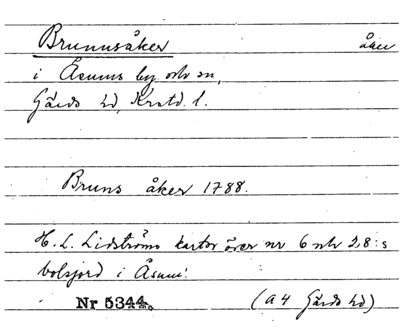 Brunnsåker åker
i Åsums by och sn,
Gärds hd, Krstd. l.
Bruns åker 1788.
H. L. Lidströms kartor över nr 6 och 2,8:s
bolsjord i Åsum.
Nr 5344. (A 4 Gärds hd)